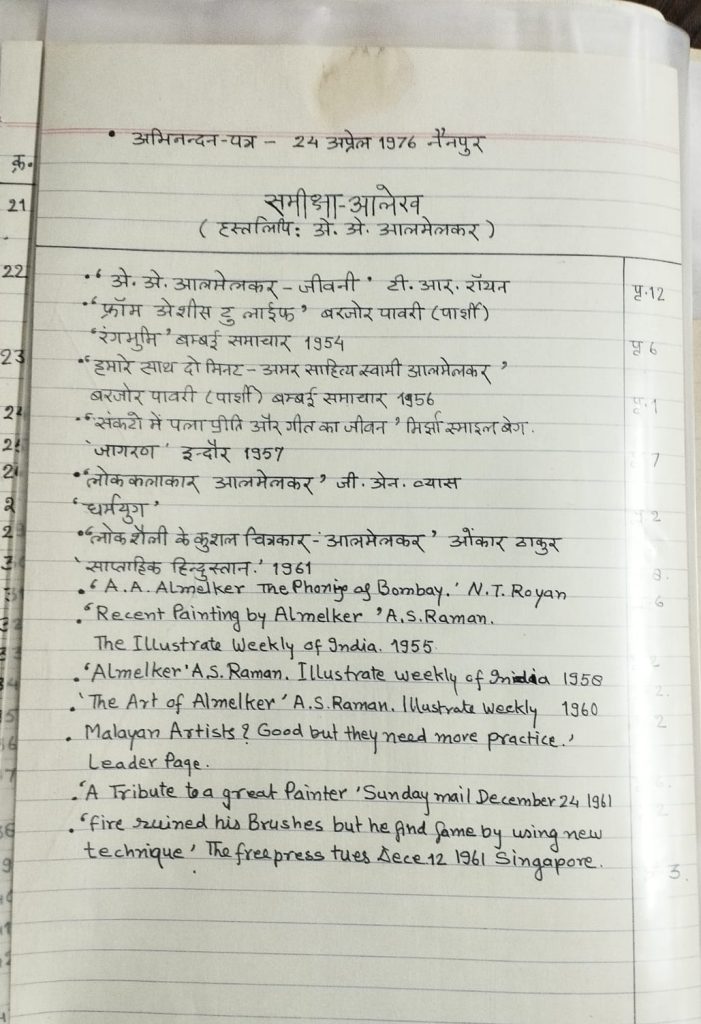 • अभिनन्दन-पत्र – 24 अप्रेल 1976 नैनपुर
क्र.
21
समीक्षा-आलेख
( हस्तलिपि: अे. अे. आलमेलकर )
22
•‘ अे. अे. आलमेलकर – जीवनी ’ टी. आर. रॉयन
पृ.12
•‘फ्रॉम अेशीस टु लाईफ’ बरजोर पावरी (पार्शी)
‘रंगभुमि’ बम्बई समाचार 1954
पृ 6
23
•‘हमारे साथ दो मिनट – अमर साहित्य स्वामी आलमेलकर ’
बरजोर पावरी (पार्शी) बम्बई समाचार 1956
पृ.1
•‘संकटो में पला प्रीति और गीत का जीवन ’ मिर्झा स्माइल बेग.
‘जागरण ’ इन्दौर 1957
7
•‘लोककलाकार आलमेलकर’ जी. अेन. व्यास
‘धर्मयुग’
2
•‘लोक शैली के कुशल चित्रकार - आलमेलकर ’ ओंकार ठाकुर
‘साप्ताहिक हिन्दुस्तान.’ 1961
•‘ A.A. Almelker The Phonixe of Bombay.’ N.T. Royan
6
•‘Recent Painting by Almelker ’ A.S. Raman.
The Illustrate Weekly of India. 1955
•‘Almelker’ A.S. Raman. Illustrate weekly of India 1958
•‘The Art of Almelker’ A.S. Raman. Illustrate weekly 1960
• Malayan Artists? Good but they need more practice.’
Leader Page.
•‘A Tribute to a great Painter ’Sunday mail December 24 1961
•‘fire ruined his Brushes but he find fame by using new
technique’ The free press tues Dece 12 1961 Singapore.
3.